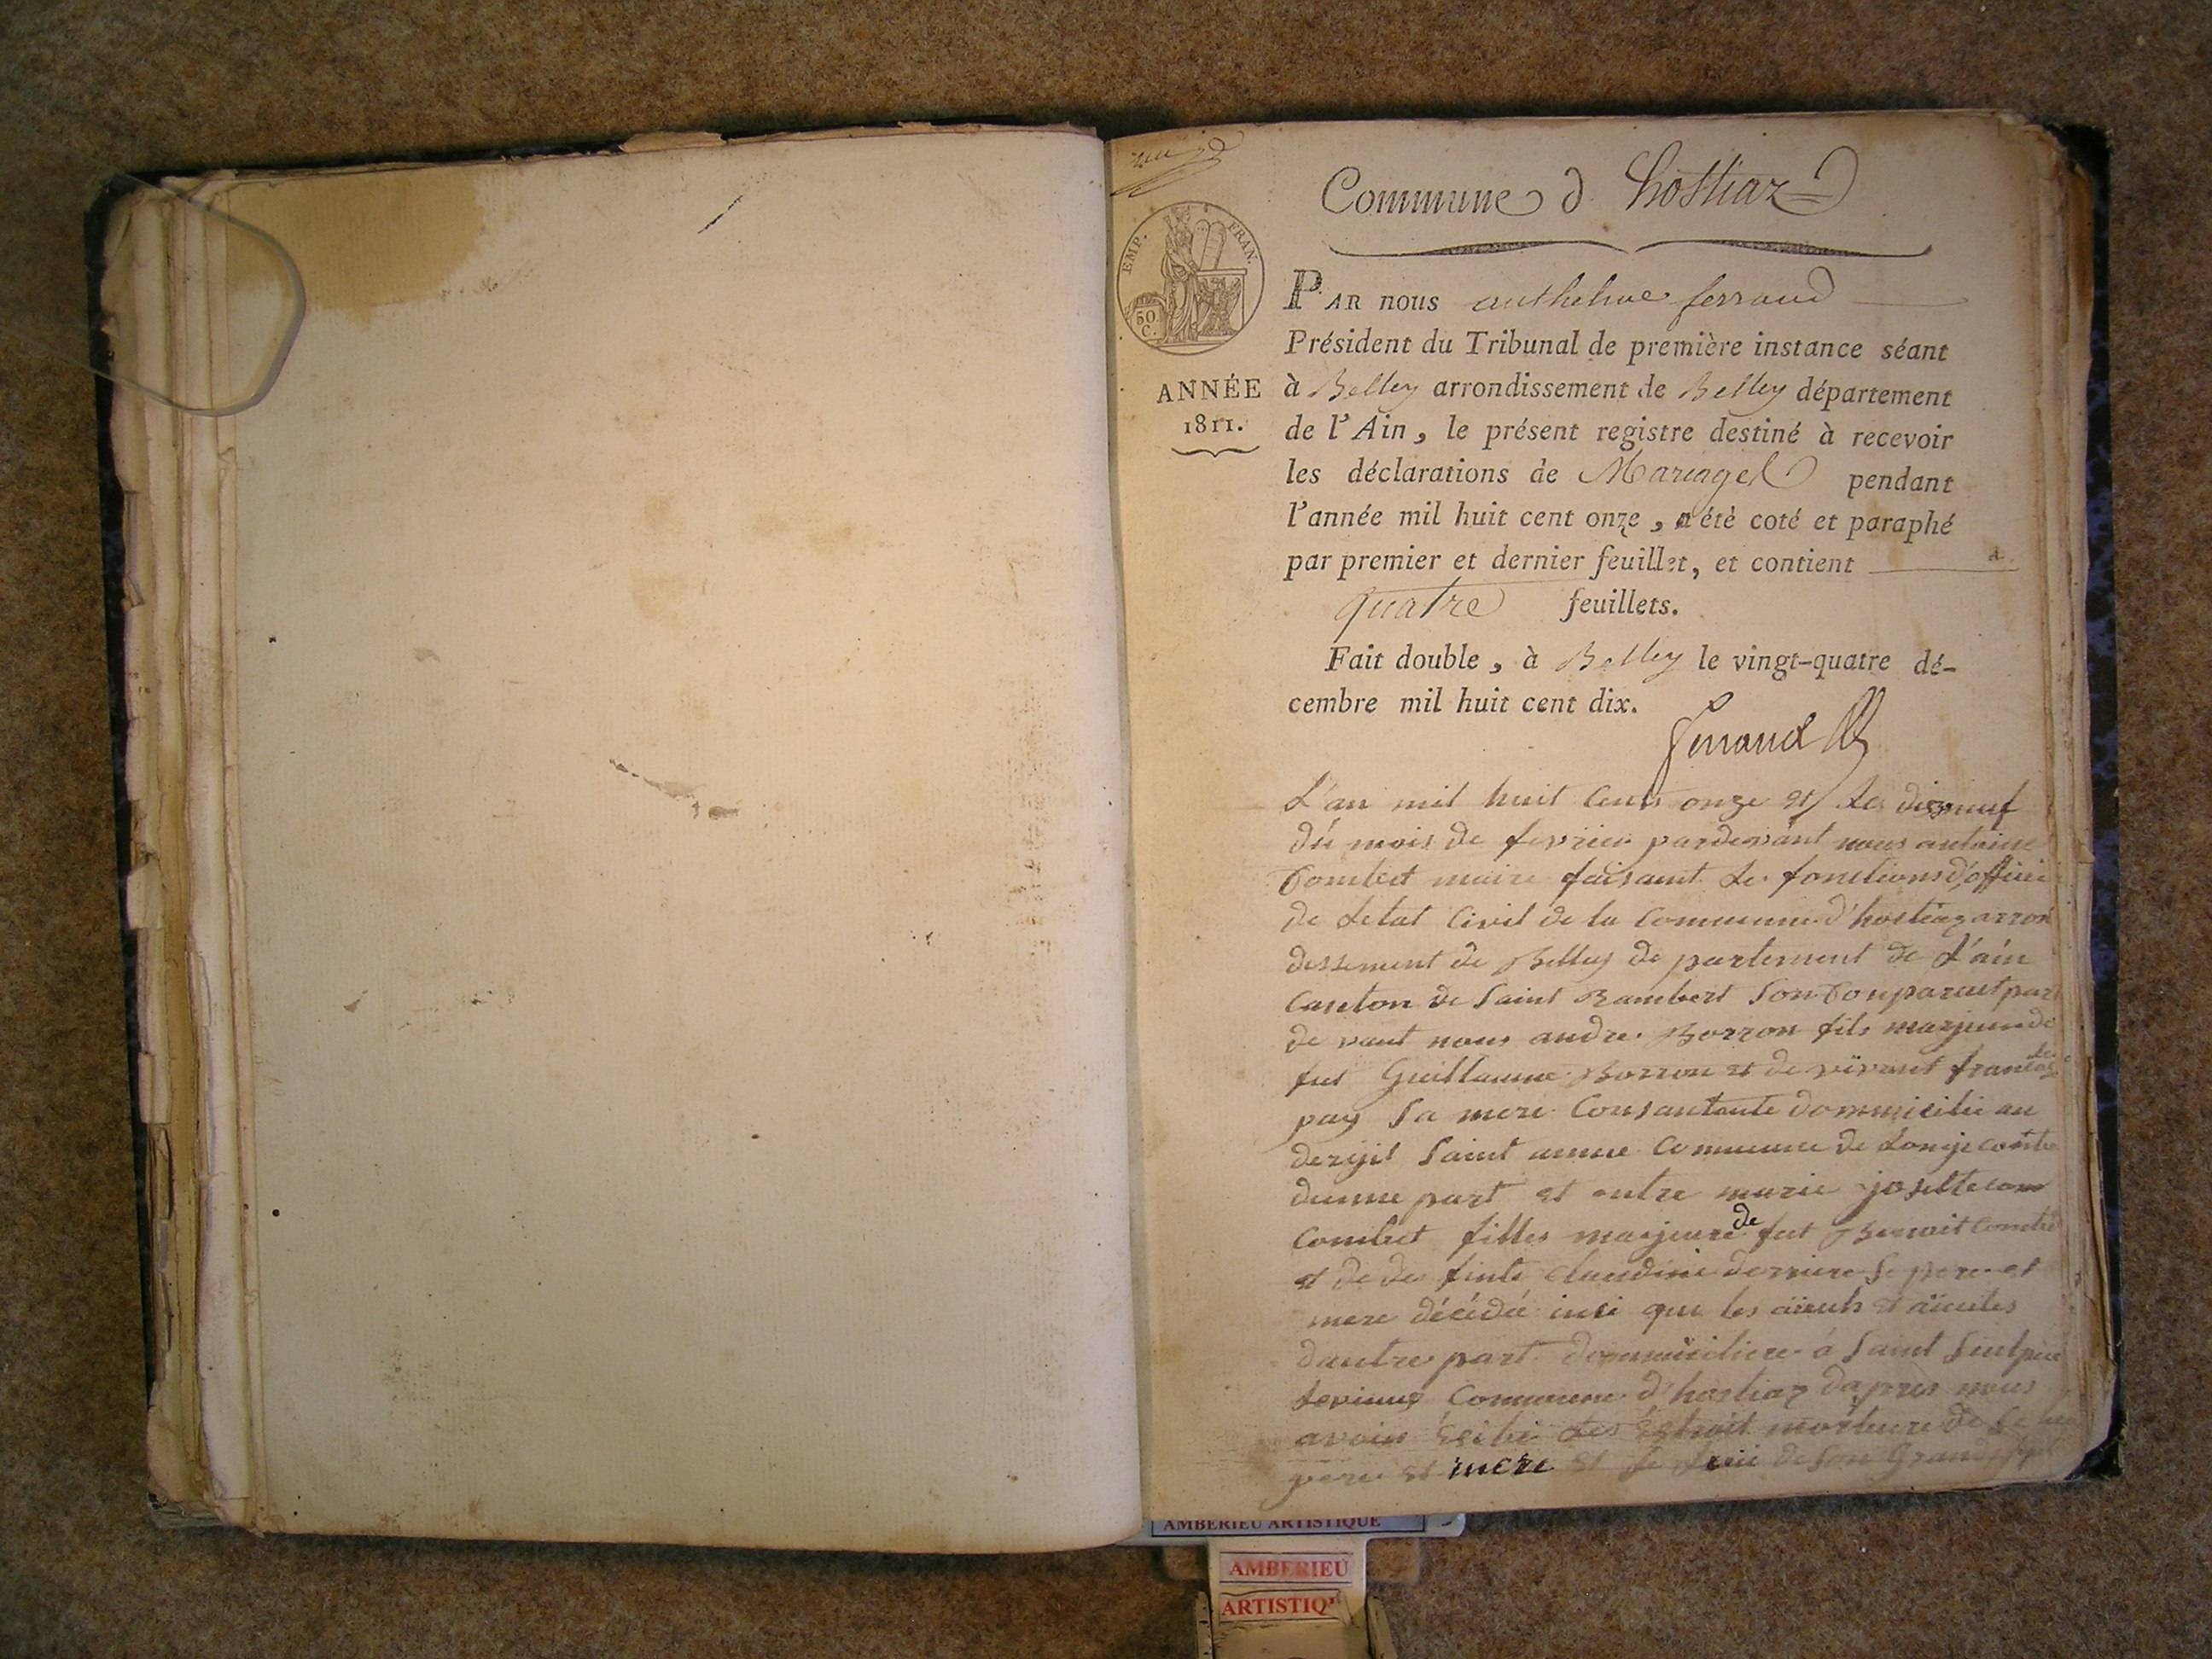 Commune d hostiaz
EMP. FRAN.
50. C.
ANNÉE
1811.
PAR nous anthelme ferrand
Président du Tribunal de première instance séant
à Belley arrondissement de Belley département
de l'Ain, le présent registre destiné à recevoir
les déclarations de Mariages pendant
l'année mil huit cent onze, a été coté et paraphé
par premier et dernier feuillet, et contient
quatre feuillets.
Fait double, à Belley le vingt-quatre dé-
cembre mil huit cent dix.
ferrand
L'an mil huit cents onze et le dizneuf
du mois de fevrier pardevant nous antoine
Combet maire faisant les fonctions d'officié
de letat Civil de la Commune d'hostiaz arron
dessement de Belley de partement de L'ain
Canton de Saint Rambert Son Conparut par
de vant nous andre Borron fils majeur de
fut Guillaume Borron et de vivant
pay Sa mere Consantante dommicilié au
Saint anne Commune de Longecombe
dunne part et autre marie josette com
Combet filles majeure de fut Benoit Combet
et de de finte Claudine derriere Se pere et
mere décédé insi que les aïeuls et aïeules
dautre part dommiciliere à Saint Sulpice
Commune d'hostiaz dapres nous
avoir Exibé Les Extrait mortuere de Se
pere et mere et de son Grand
AMBERIEU ARTISTIQUE
AMBERIEU
ARTISTIQ